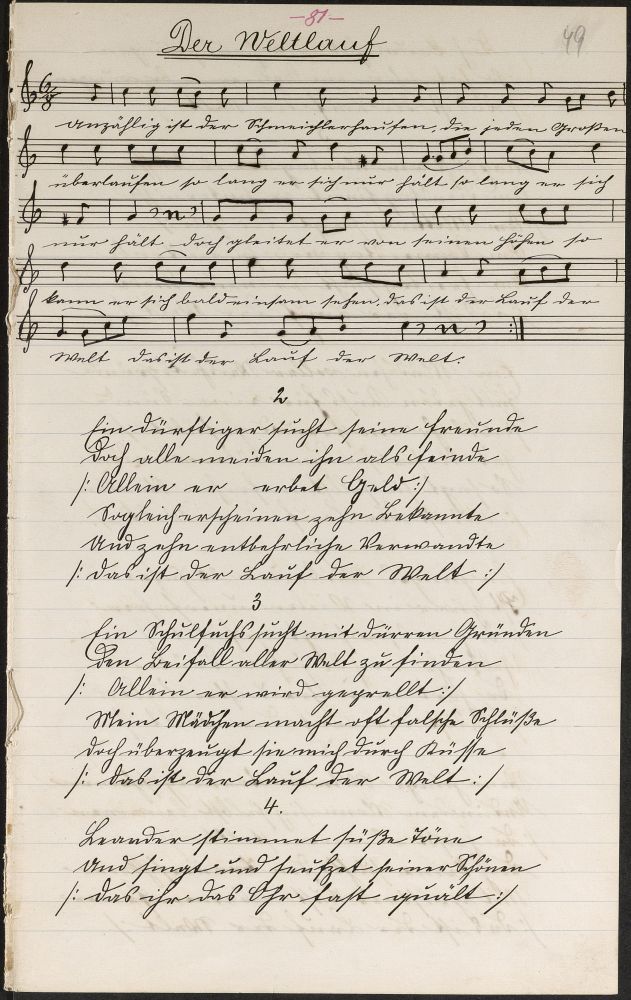 -81-
49
Der Weltlauf
unzählig ist der Schmeichlerhaufen, die jeden Großen
überlaufen so lang er sich nur hält so lang er sich
nur hält doch gleitet er von seinen Höhen so
kann er sich bald einsam sehen, das ist der Lauf der
Welt das ist der Lauf der Welt:
2
Ein dürftiger sucht seine Freunde
Doch alle meiden ihn als Feinde
/: Allein er erbet Geld :/
Sogleich erscheinen zehn Bekannte
Und zehn entbehrliche Verwandte
/: das ist der Lauf der Welt :/
3
Ein Schulfuchs sucht mit dürren Gründen
Den Beifall aller Welt zu finden
/: Allein er wird geprellt :/
Mein Mädchen macht oft falsche Schlüße
doch überzeugt sie mich durch Küsse
/: das ist der Lauf der Welt :/
4.
Leander stimmet süße Töne
Und singt und seufzet seiner Schönen
/: das ihr das Ohr fast quält :/